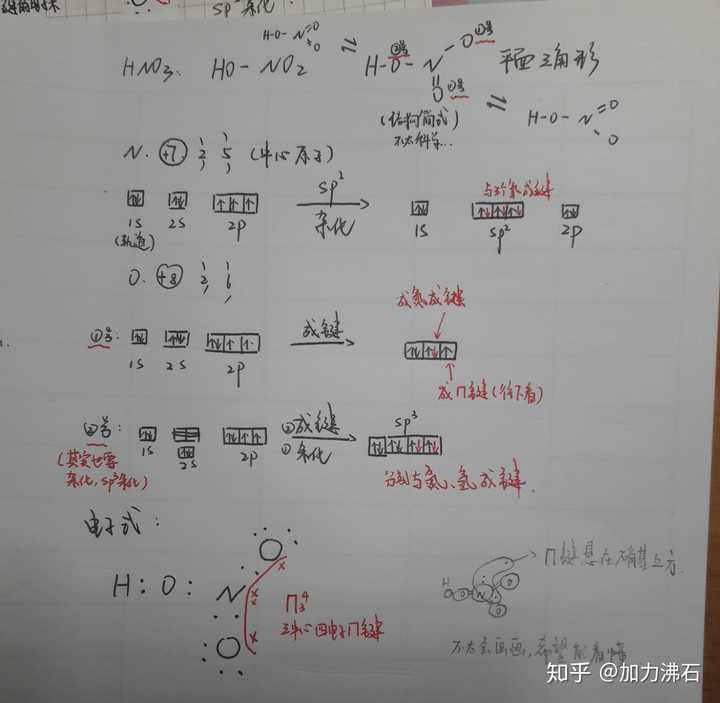 sp³杂化
H-O-N=O
O
HNO₃. HO-NO₂ ⇌ H-O-N 平面三角形
②号
O①号
O①号
(结构简式)
不太科学...
⇌ H-O-N=O
O
N. +7 2 5 (中心原子)
1s 2s 2p
(轨道)
sp²
杂化
与3个氧成键
1s sp² 2p
O. +8 2 6
①号:
1s 2s 2p
成键
成氮成键
成π键(往下看)
②号:
1s 2s 2p
(其实也要
杂化,sp³杂化)
①成键
①杂化
sp³
分别与氮、氢成键.
电子式:
H:O:N
O
O
Π₃⁴
三中心四电子Π键
H O N O O
Π键悬在硝基上方.
不太会画画,希望能看懂
知乎 @加力沸石